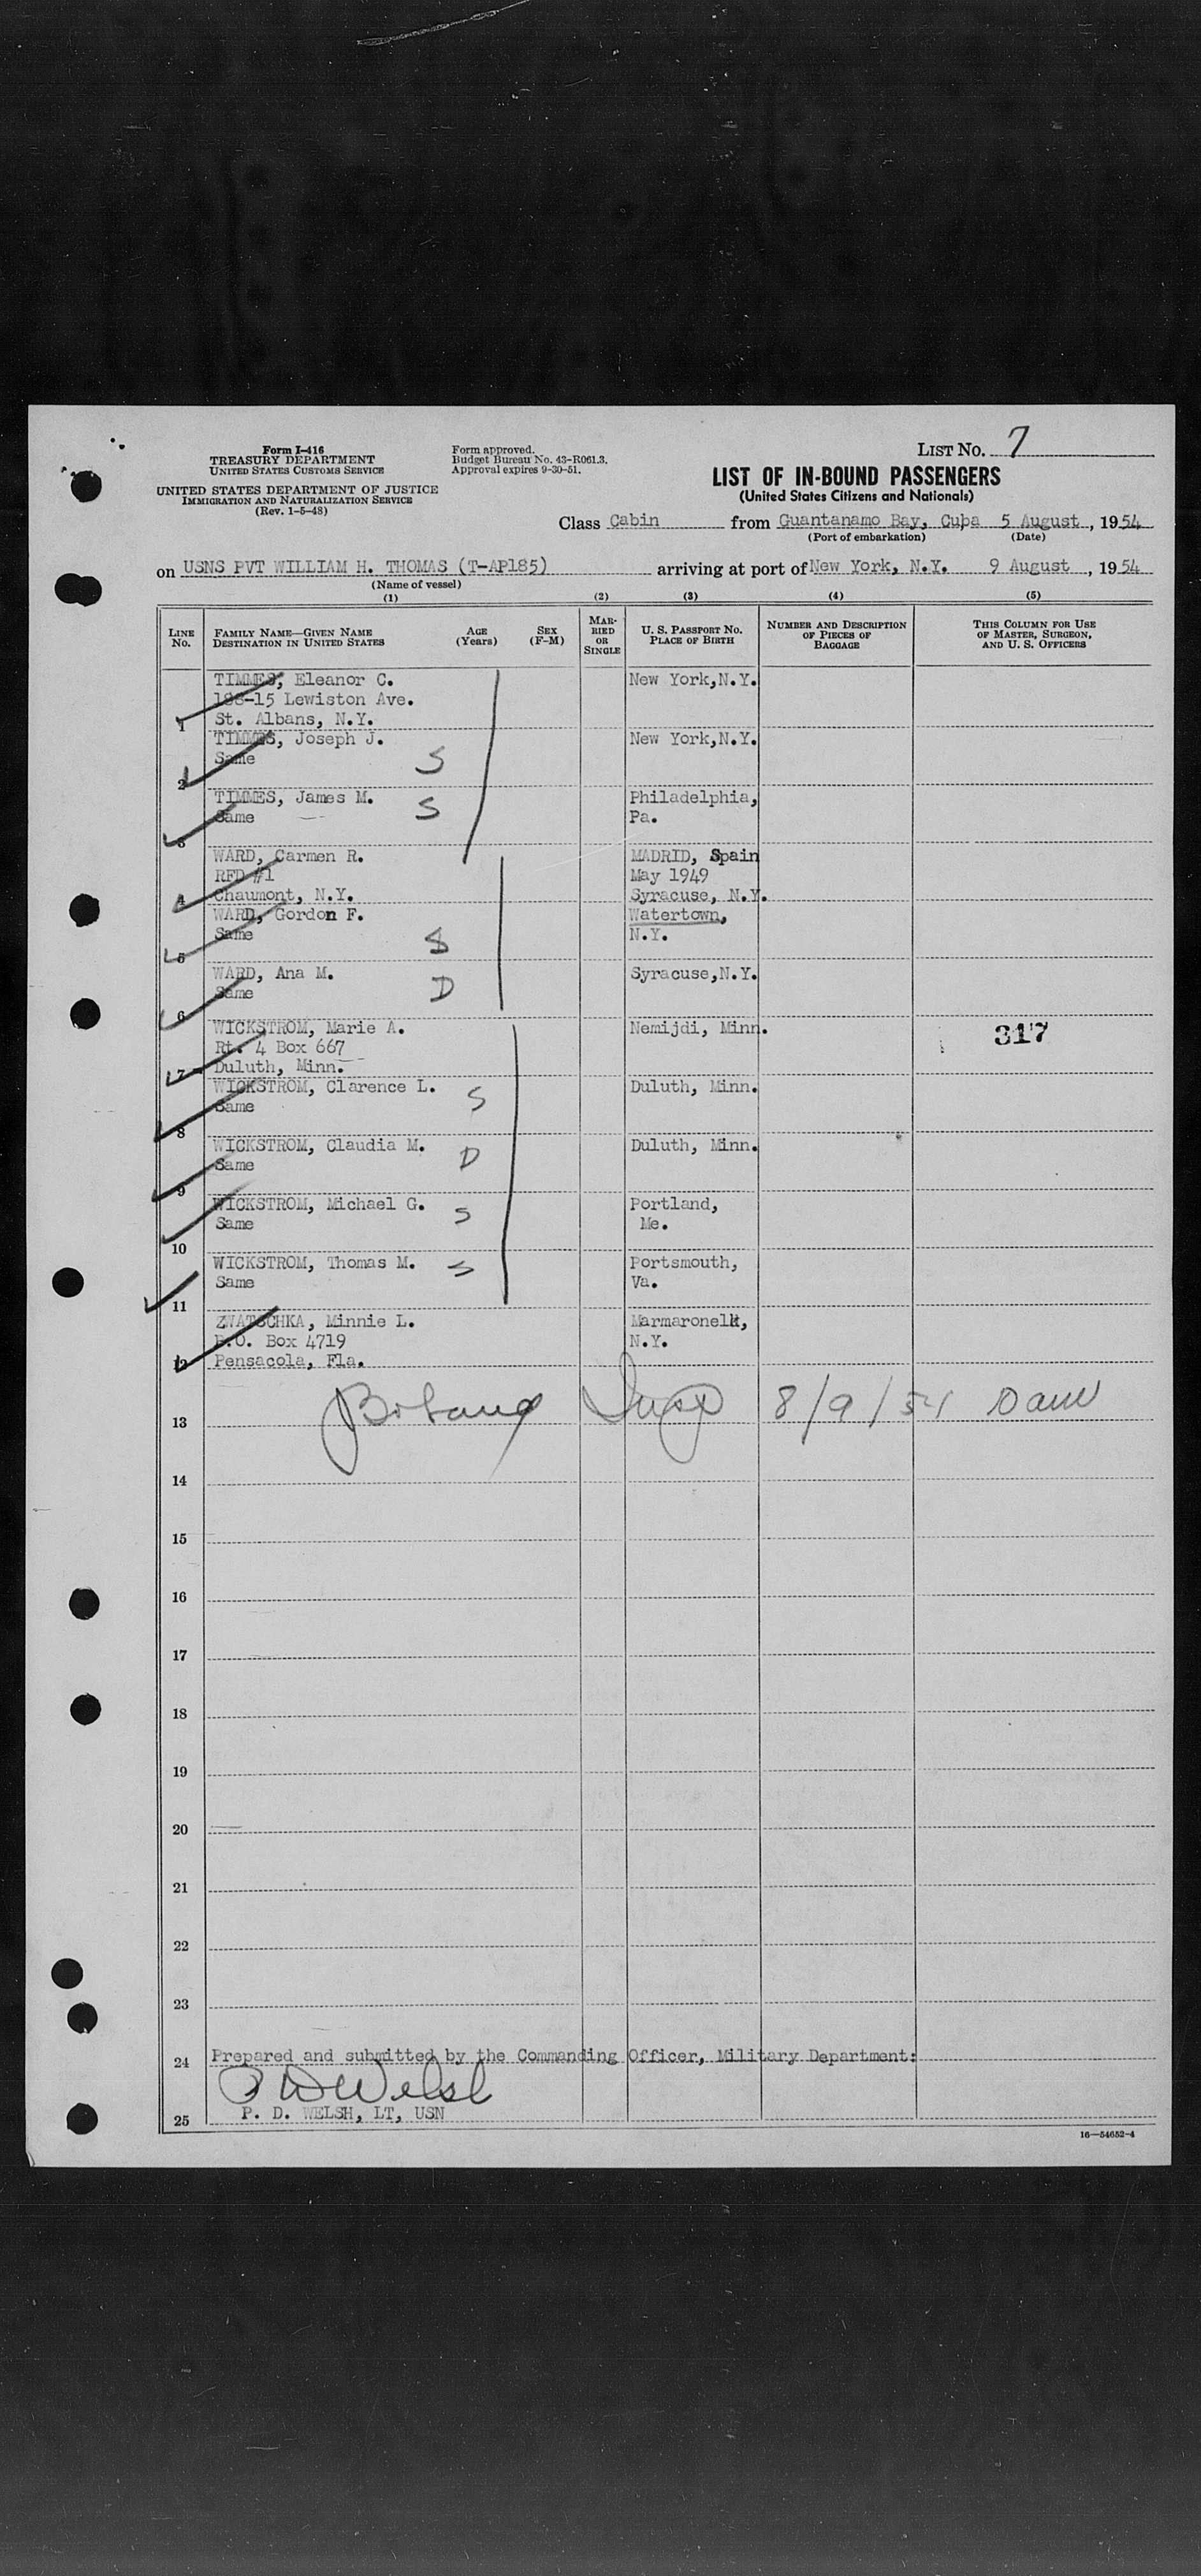 Form I-416
TREASURY DEPARTMENT
UNITED STATES CUSTOMS SERVICE
UNITED STATES DEPARTMENT OF JUSTICE
IMMIGRATION AND NATURALIZATION SERVICE
(Rev. 1-5-48)
Form approved.
Budget Bureau No. 43-R061.3.
Approval expires 9-30-51.
LIST NO. 7
LIST OF IN-BOUND PASSENGERS
(United States Citizens and Nationals)
Class Cabin from Guantanamo Bay, Cuba 5 August, 1954
(Port of embarkation) (Date)
on USNS PVT WILLIAM H. THOMAS (T-AP185) arriving at port of New York, N.Y. 9 August, 1954
(Name of vessel)
(1) (2) (3) (4) (5)
LINE NO.
FAMILY NAME—GIVEN NAME
DESTINATION IN UNITED STATES
AGE (Years)
SEX (F-M)
MARRIED OR SINGLE
U. S. PASSPORT NO.
PLACE OF BIRTH
NUMBER AND DESCRIPTION OF PIECES OF BAGGAGE
THIS COLUMN FOR USE OF MASTER, SURGEON, AND U. S. OFFICERS
TIMMES, Eleanor C. New York, N.Y.
188-15 Lewiston Ave.
1 St. Albans, N.Y.
TIMMES, Joseph J. New York, N.Y.
Same S
2
TIMMES, James M. S Philadelphia,
Same Pa.
3
WARD, Carmen R. MADRID, Spain
RFD #1 May 1949
4 Chaumont, N.Y. Syracuse, N.Y.
WARD, Gordon F. Watertown,
Same S N.Y.
5
WARD, Ana M. Syracuse, N.Y.
Same D
6
WICKSTROM, Marie A. Nemijdi, Minn. 317
Rt. 4 Box 667
7 Duluth, Minn.
WICKSTROM, Clarence L. S Duluth, Minn.
Same
8
WICKSTROM, Claudia M. D Duluth, Minn.
Same
9
WICKSTROM, Michael G. S Portland,
Same Me.
10
WICKSTROM, Thomas M. S Portsmouth,
Same Va.
11
ZWATSCHKA, Minnie L. Marmaronell,
P.O. Box 4719 N.Y.
12 Pensacola, Fla.
13 Insp 8/9/54
14
15
16
17
18
19
20
21
22
23
24 Prepared and submitted by the Commanding Officer, Military Department:
P D Welsh
25 P. D. WELSH, LT, USN
16—54652-4